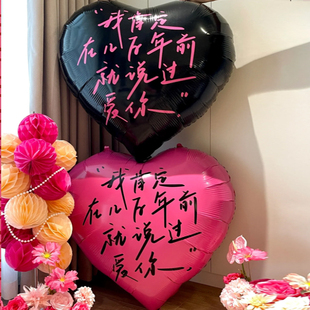 “我肯定
在几百年前
就说过
爱你.”
“我肯定
在几百年前
就说过
爱你.”